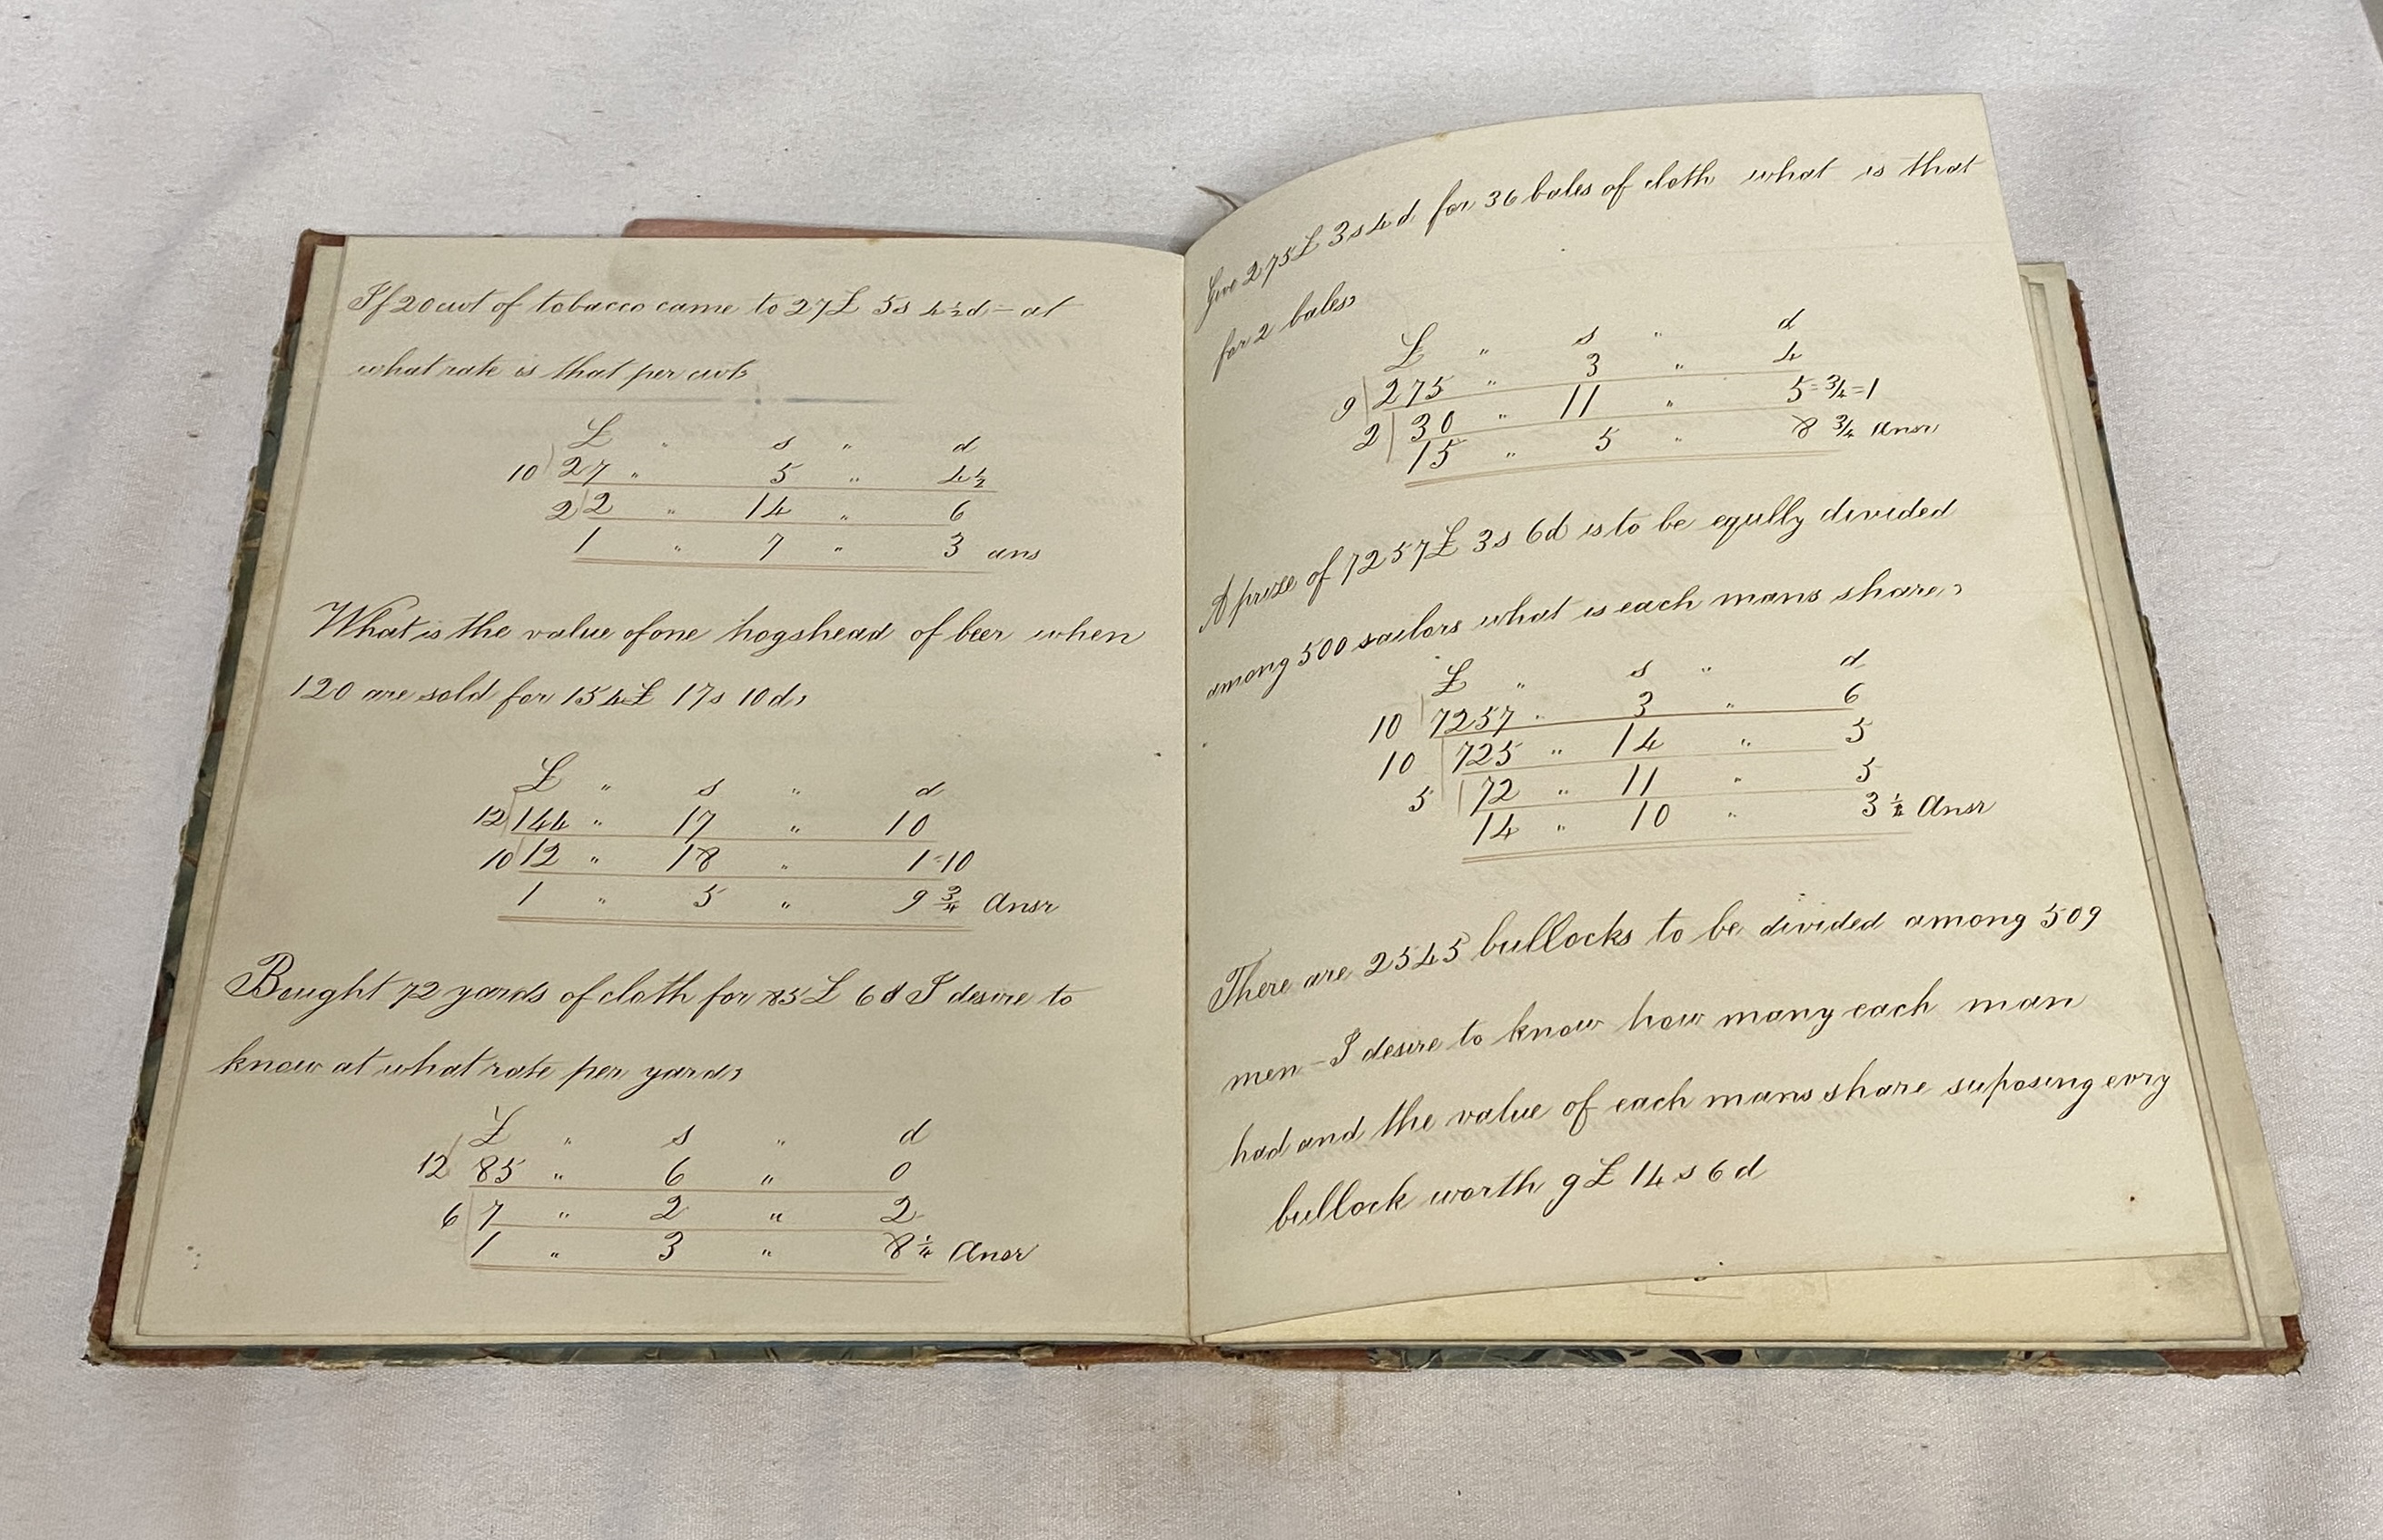 If 20 cwt of tobacco came to 27£ 5s 4½d - at
what rate is that per cwt
£ " s " d
10) 27 " 5 " 4½
2) 2 " 14 " 6
1 " 7 " 3 ans
What is the value of one hogshead of beer when
120 are sold for 154£ 17s 10d,
£ " s " d
12) 144 " 17 " 10
10) 12 " 18 " 1=10
1 " 5 " 9 ¾ Ansr
Bought 72 yards of cloth for 85£ 6s I desire to
know at what rate per yard,
£ " s " d
12 85 " 6 " 0
6 7 " 2 " 2
1 " 3 " 8 ¼ Ansr
Give 275£ 3s 4d for 36 bales of cloth what is that
for 2 bales,
£ " s " d
9 275 " 3 " 4
2 30 " 11 " 5=¾=1
15 " 5 " 8 ¾ Ansr
A prize of 7257£ 3s 6d is to be eqully divided
among 500 sailors what is each mans share,
£ " s " d
10 7257 " 3 " 6
10 725 " 14 " 5
5 72 " 11 " 5
14 " 10 " 3 Ansr
There are 2545 bullocks to be divided among 509
men - I desire to know how many each man
had and the value of each mans share suposing evry
bullock worth 9£ 14s 6d